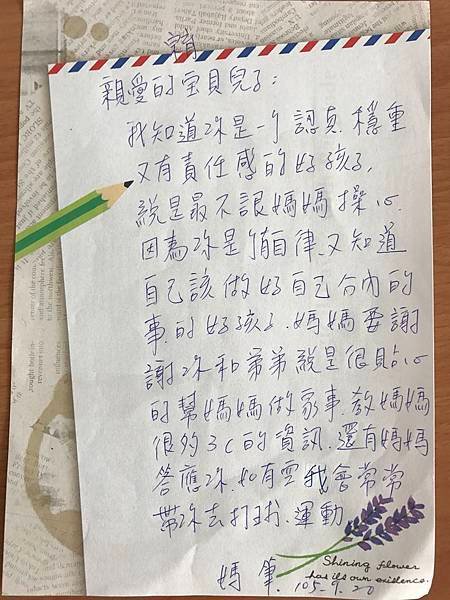 親愛的宝貝兒子:
我知道你是一个認真.穩重
又有責任感的好孩子,
總是最不讓媽媽操心.
因為你是个自律.又知道
自己該做好自己分內的
事.的好孩子.媽媽要謝
謝你和弟弟總是很貼心
的幫媽媽做家事.教媽媽
很多3C的資訊.還有媽媽
答應你.如有空我會常常
帶你去打球.運動
媽 筆. 105.9.20
Shining flower
has its own existence.